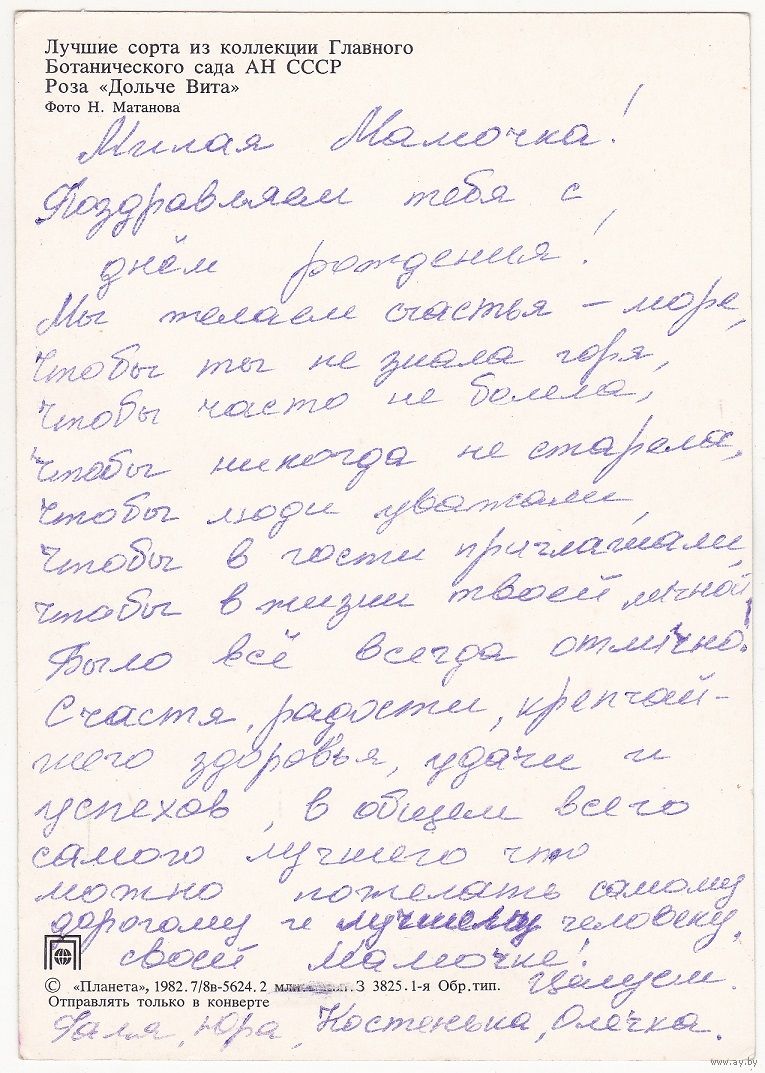 Лучшие сорта из коллекции Главного
Ботанического сада АН СССР
Роза «Дольче Вита»
Фото Н. Матанова
Милая Мамочка!
Поздравляем тебя с
днём рождения!
Мы желаем счастья – море,
Чтобы ты не знала горя,
Чтобы часто не болела,
Чтобы никогда не старела,
Чтобы люди уважали,
Чтобы в гости приглашали,
Чтобы в жизни твоей личной,
Было всё всегда отлично!
Счастя, радости, крепчай-
шего здоровья, удачи и
успехов, в общем всего
самого лучшего что
можно пожелать самому
дорогому и лучшему человеку,
своей Мамочке!
Целуем.
© «Планета», 1982. 7/8в-5624. 2 З 3825. 1-я Обр. тип.
Отправлять только в конверте
Галя, Юра, Костенька, Олечка.
www.ay.by